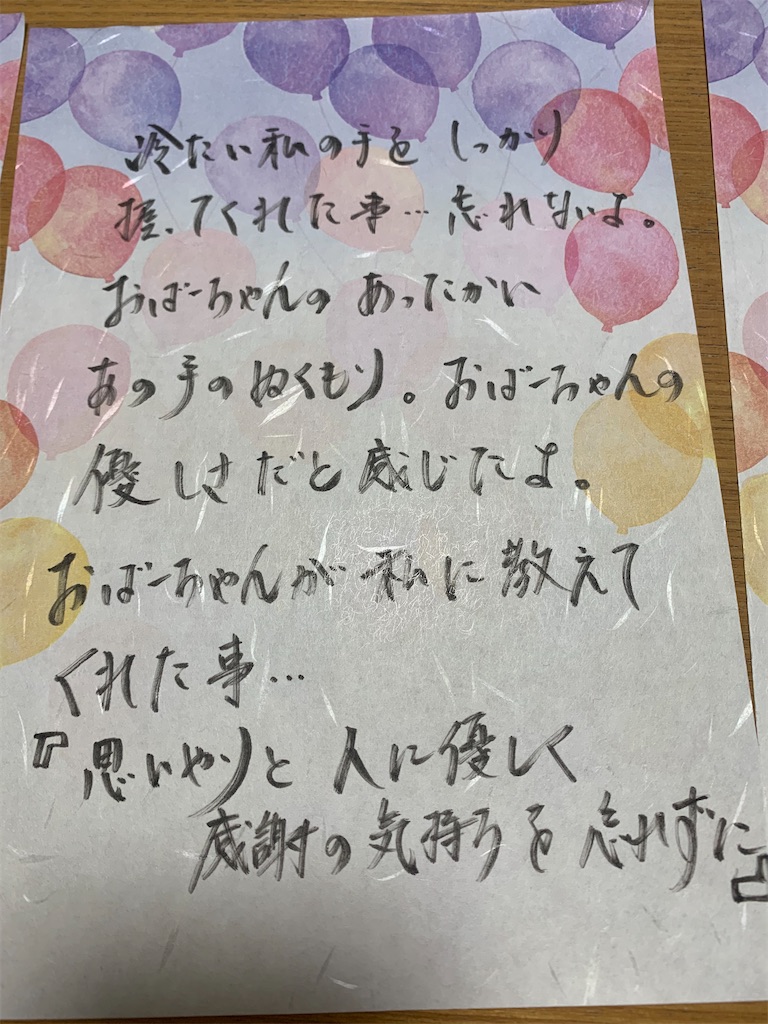 冷たい私の手を しっかり
握ってくれた事…忘れないよ。
おばーちゃんの あったかい
あの手のぬくもり。おばーちゃんの
優しさだと感じたよ。
おばーちゃんが私に教えて
くれた事…
『思いやりと人に優しく
感謝の気持ちを忘れずに』